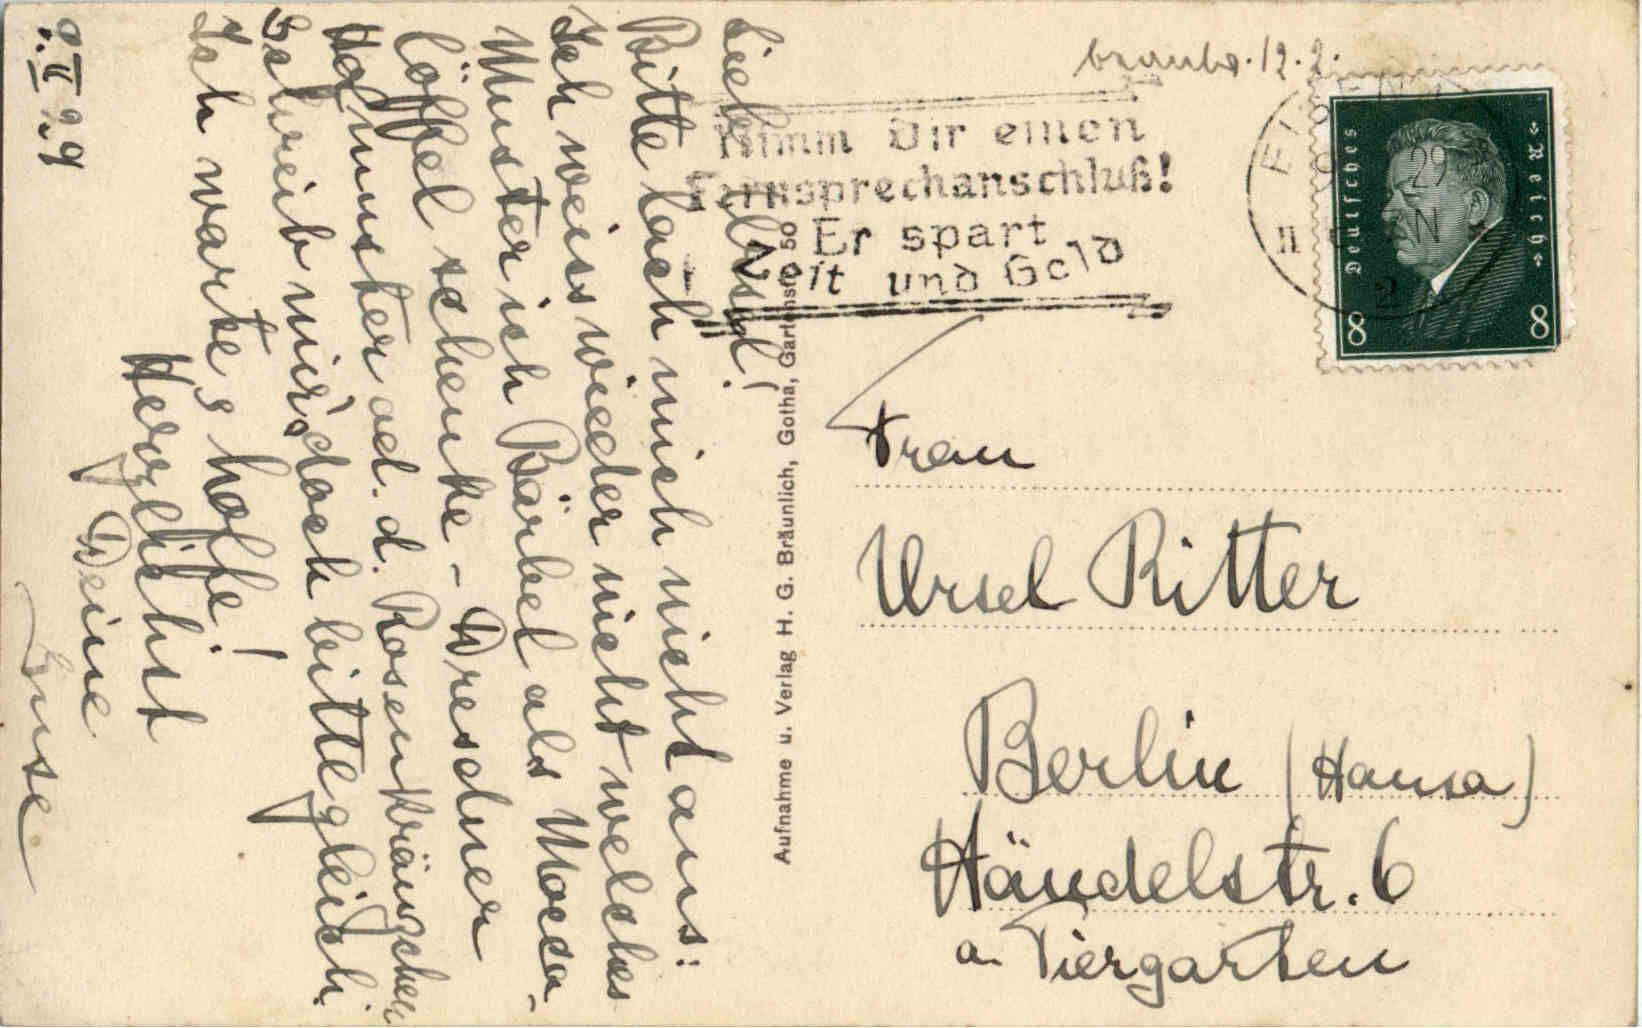 8.II 29
Liebe Ursel!
Bitte lach mich nicht aus:
Ich weiss wieder nicht welches
Muster ich Bärbel als Mocca-
löffel schenke - Dresdner
Hofmuster od. d. Rosenkränzchen
Schreib mir's doch bitte gleich.
Ich warte, s hoffe!
Herzlichst
Deine
Aufnahme u. Verlag H. G. Bräunlich, Gotha, Gartenstr. 50
12.2.
Nimm Dir einen
Fernsprechanschluß!
Er spart
Zeit und Geld
29
Deutsches Reich
8 8
Frau
Ursel Ritter
Berlin (Hansa)
Händelstr. 6
a. Tiergarten